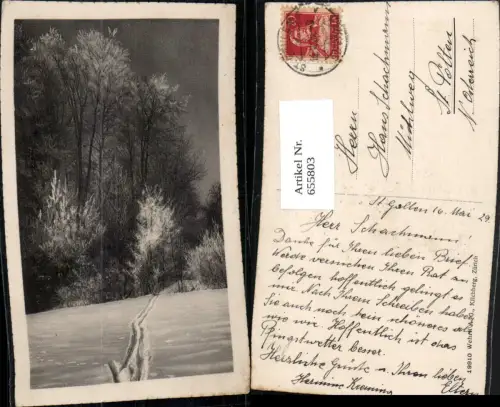 Artikel Nr.
655803
Herrn
Hans Schachmann
Mühlweg
St. Pölten
N. Österreich
St. Gallen 16. Mai 29
Herr Schachmann!
Danke für Ihren lieben Brief
Werde versuchen Ihren Rat zu
befolgen hoffentlich gelingt es
mir. Nach Ihrem Schreiben haben
Sie auch noch kein schöneres als
wie wir. Hoffentlich ist das
Pfingstwetter besser.
Herzliche Grüße u. Ihren lieben
Eltern
Hermine
Kilchberg, Zürich